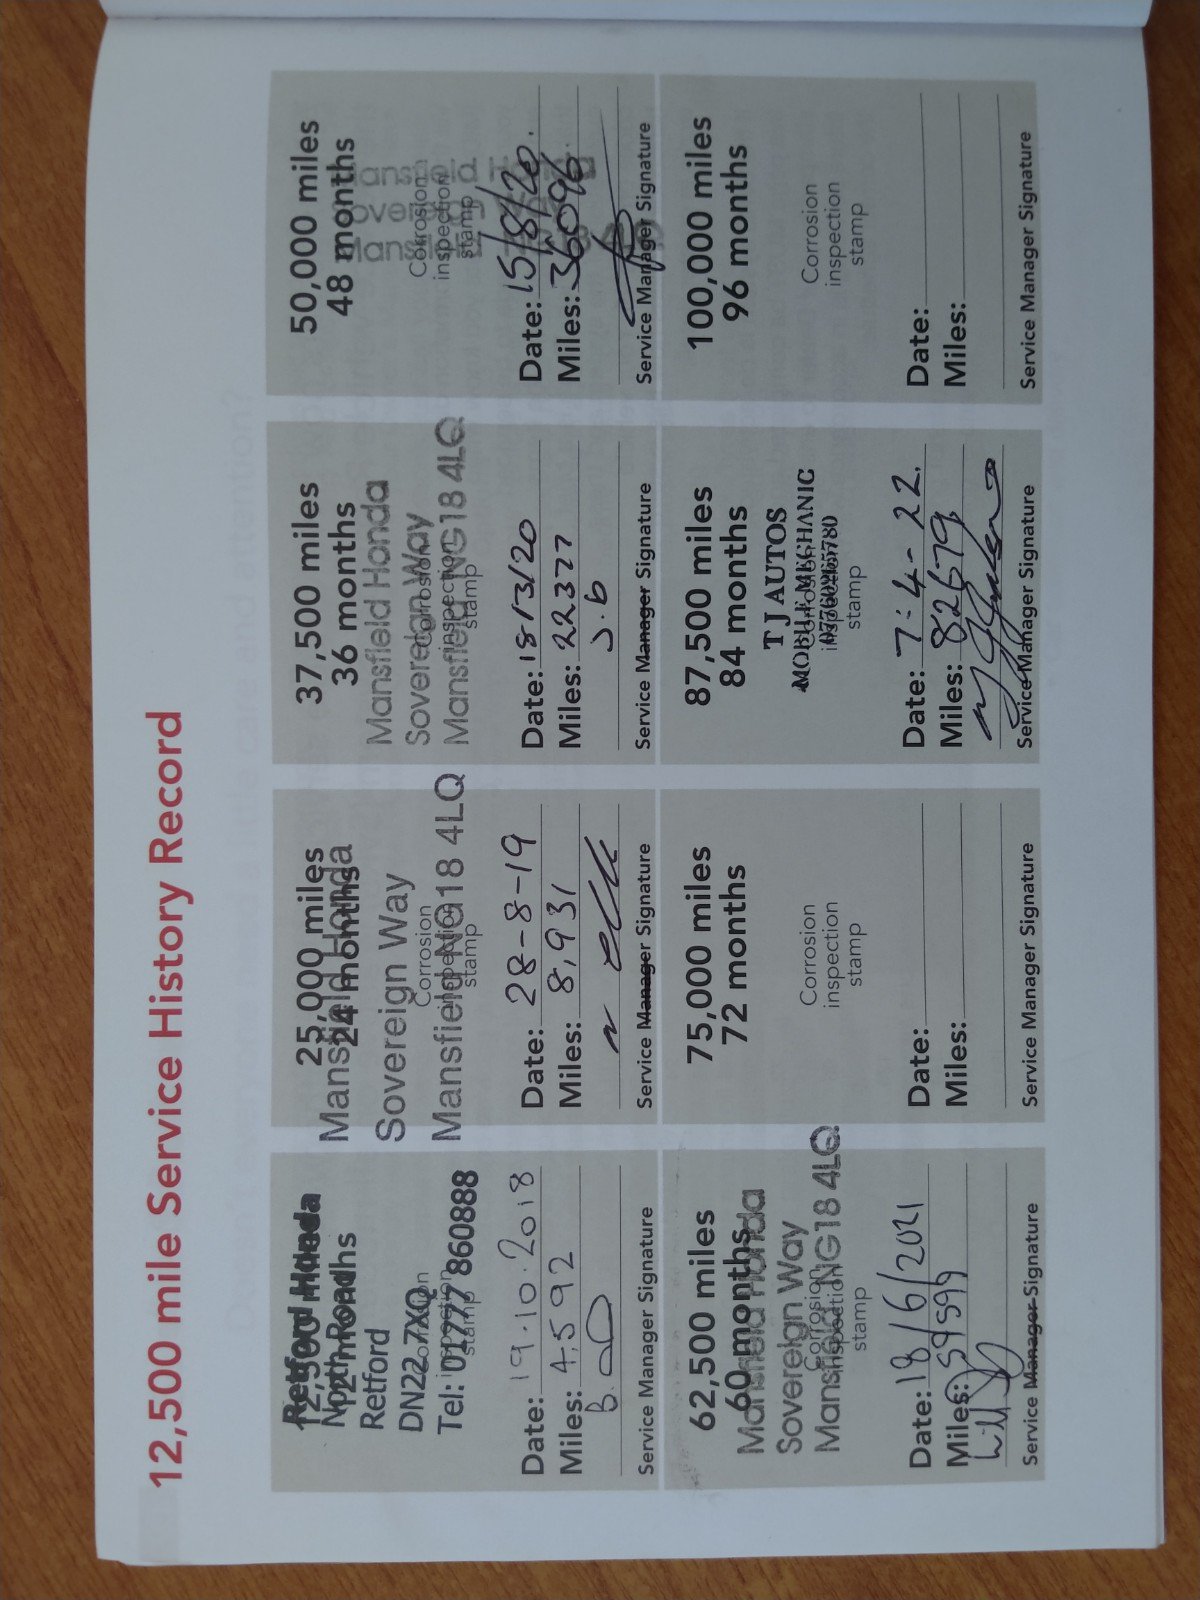 12,500 mile Service History Record
12,500 miles
12 months
Retford Honda
North Road
Retford
DN22 7XQ
Tel: 01777 860888
Corrosion
inspection
stamp
Date: 19.10.2018
Miles: 4,592
Service Manager Signature
25,000 miles
24 months
Mansfield Honda
Sovereign Way
Mansfield NG18 4LQ
Corrosion
inspection
stamp
Date: 28-8-19
Miles: 8,931
Service Manager Signature
37,500 miles
36 months
Mansfield Honda
Sovereign Way
Mansfield NG18 4LQ
Corrosion
inspection
stamp
Date: 18/3/20
Miles: 22377
J.b
Service Manager Signature
50,000 miles
48 months
Mansfield Honda
Sovereign Way
Mansfield
Corrosion
inspection
stamp
Date: 15/8/20.
Miles: 36096
Service Manager Signature
62,500 miles
60 months
Mansfield Honda
Sovereign Way
Mansfield NG18 4LQ
Corrosion
inspection
stamp
Date: 18/6/2021
Miles: 59599
Service Manager Signature
75,000 miles
72 months
Corrosion
inspection
stamp
Date:
Miles:
Service Manager Signature
87,500 miles
84 months
T J AUTOS
MOBILE MECHANIC
Corrosion
inspection
stamp
Date: 7-4-22.
Miles: 82679
Service Manager Signature
100,000 miles
96 months
Corrosion
inspection
stamp
Date:
Miles:
Service Manager Signature